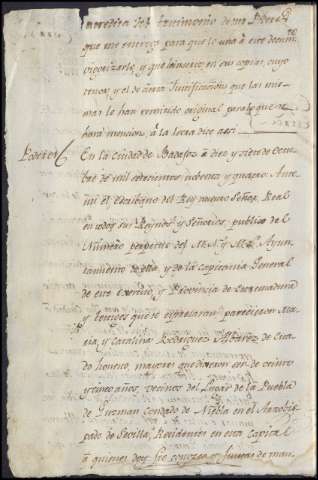 acredita del testimonio de un Poder
que me entrego para que lo una a este docum.to
vigorizarle, y que inserte en sus copias, cuyo
tenor, y el de cierta Justificacion que las mis-
mas le han remitido original para lo que se
hará mencion, á la letra dice asi
Poder
En la ciudad de Badajoz á diez y siete de Octu-
bre de mil setecientos nobenta y quatro: Ante
mi el Escribano del Rey nuestro Señor, Real
en todos sus Reynos y Señorios, publico del
Numero perpetuo del M. N. y M. L. Ayun-
tamiento de ella, y de la Capitania General
de este exercito y Provincia de Extremadura
y testigos que se expresaran parecieron Ma-
ria, y Catalina Rodriguez Albarez de esta-
do honesto, mayores que dixeron ser de veinte
y cinco años, vecinas del Lugar de la Puebla
de Guzman Condado de Niebla en el Arzobis-
pado de Sevilla, Residentes en esta Capital
á quienes doy fee conozco y juntas de man-